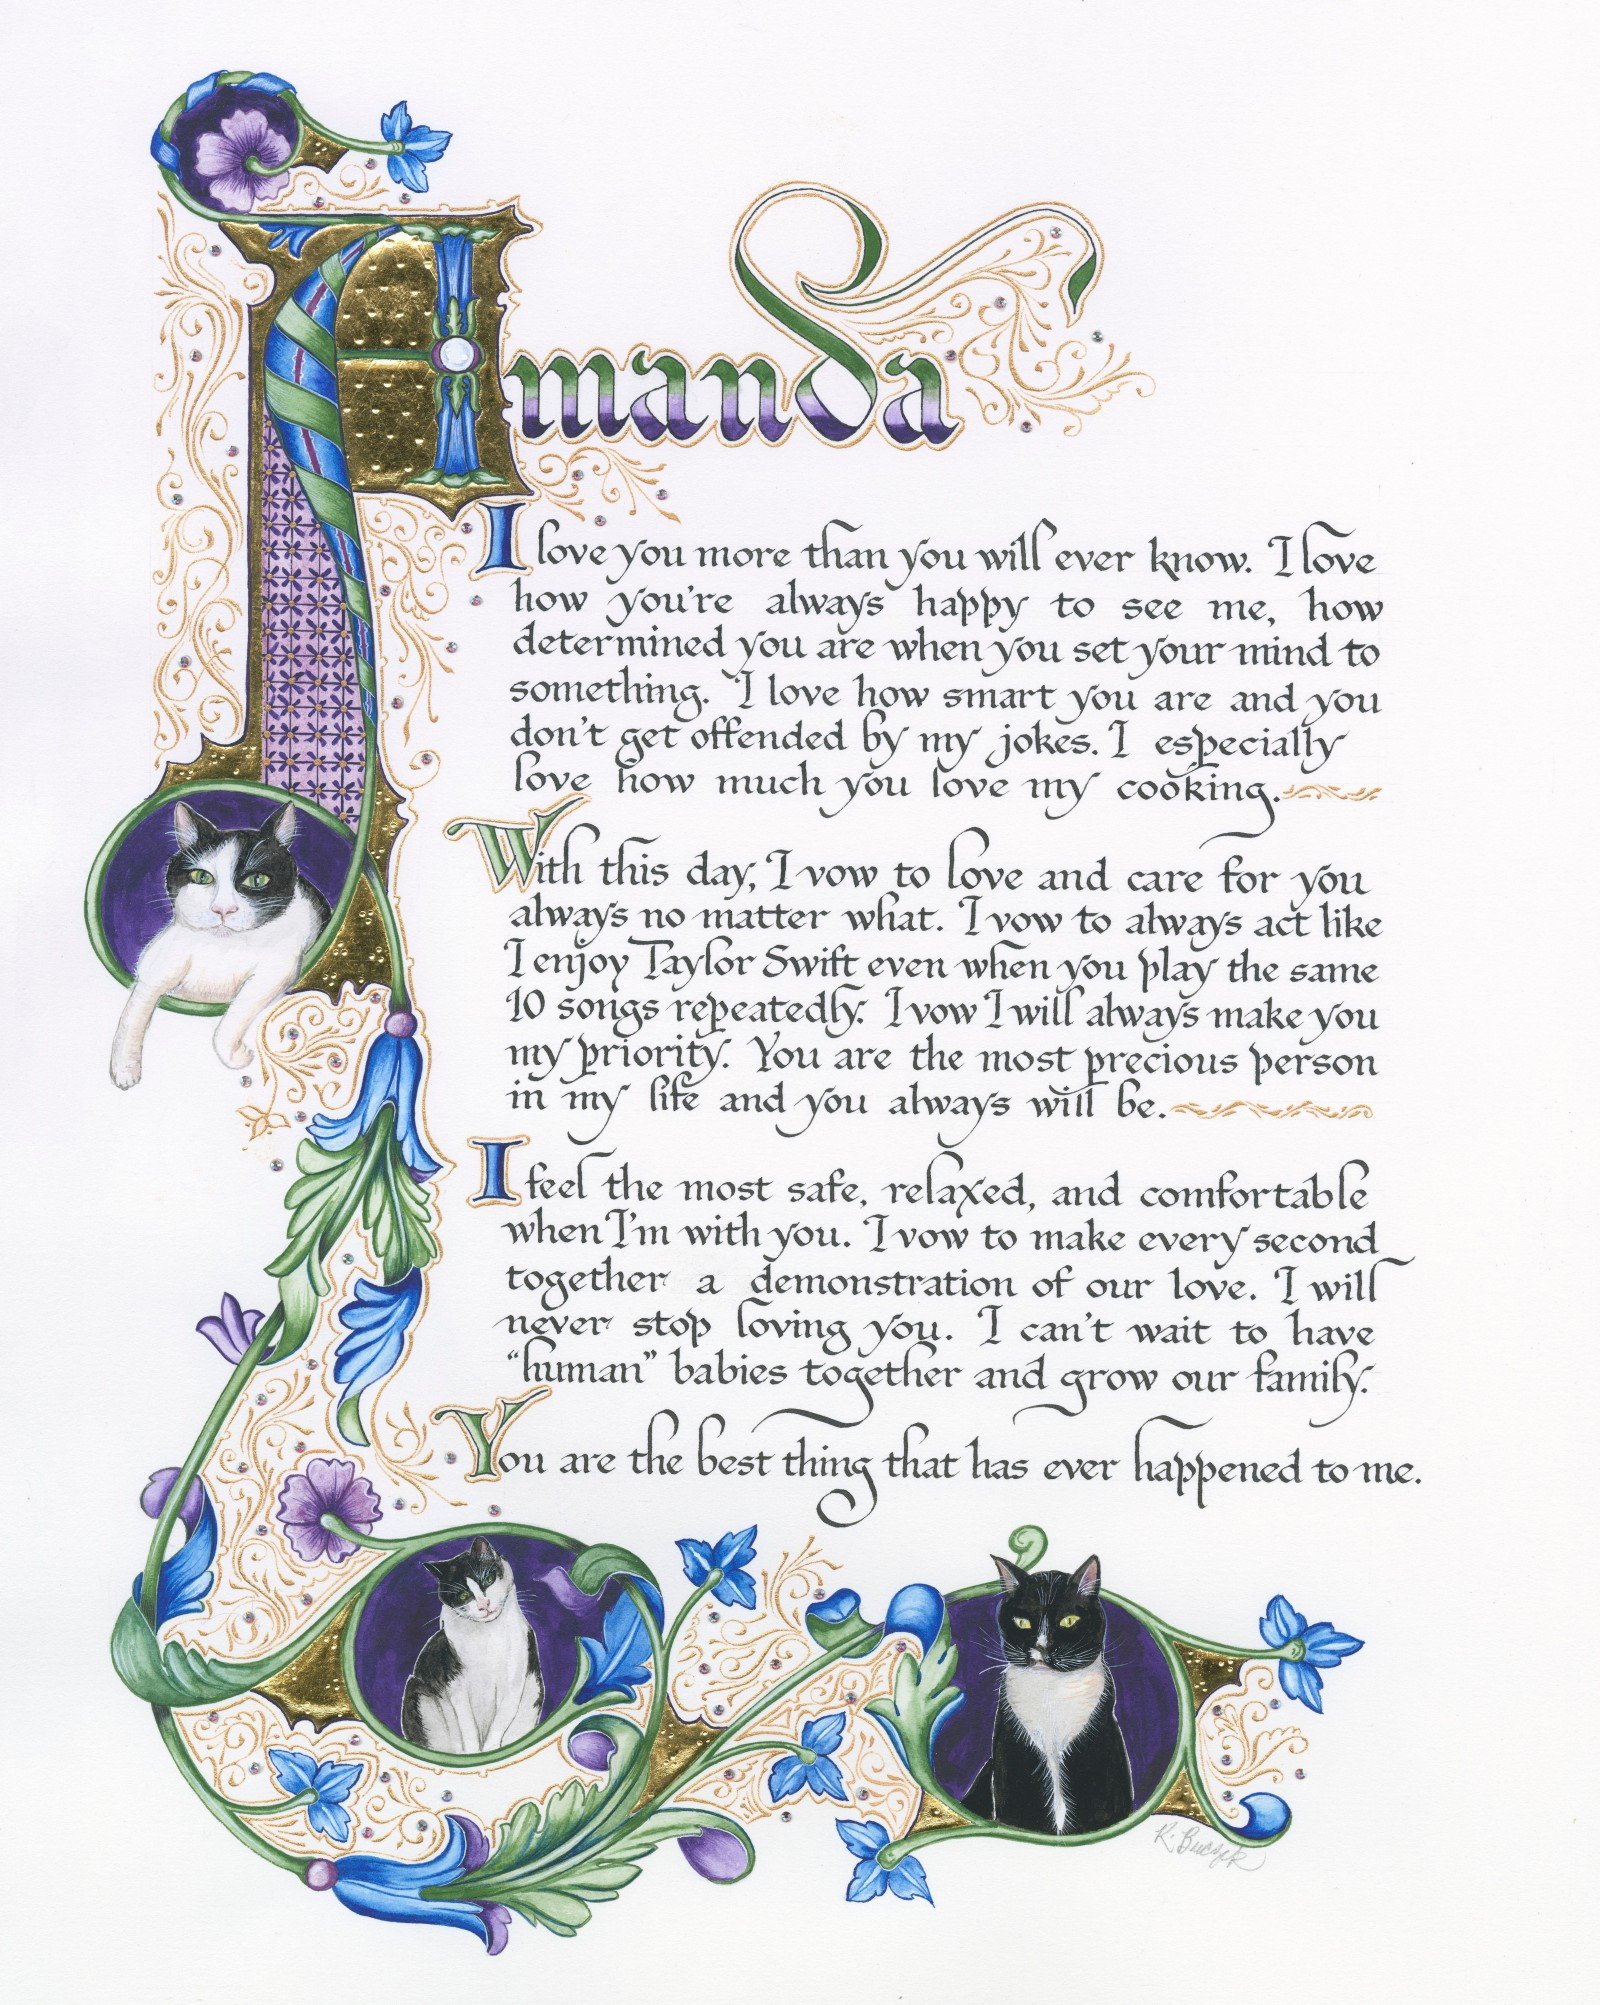 Amanda
I love you more than you will ever know. I love
how you're always happy to see me, how
determined you are when you set your mind to
something. I love how smart you are and you
don't get offended by my jokes. I especially
love how much you love my cooking.
With this day, I vow to love and care for you
always no matter what. I vow to always act like
I enjoy Taylor Swift even when you play the same
10 songs repeatedly. I vow I will always make you
my priority. You are the most precious person
in my life and you always will be.
I feel the most safe, relaxed, and comfortable
when I'm with you. I vow to make every second
together a demonstration of our love. I will
never stop loving you. I can't wait to have
"human" babies together and grow our family.
You are the best thing that has ever happened to me.
R. Buczek